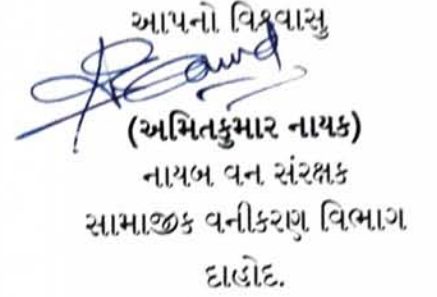 આપનો વિશ્વાસુ
(અમિતકુમાર નાયક)
નાયબ વન સંરક્ષક
સામાજીક વનીકરણ વિભાગ
દાહોદ.